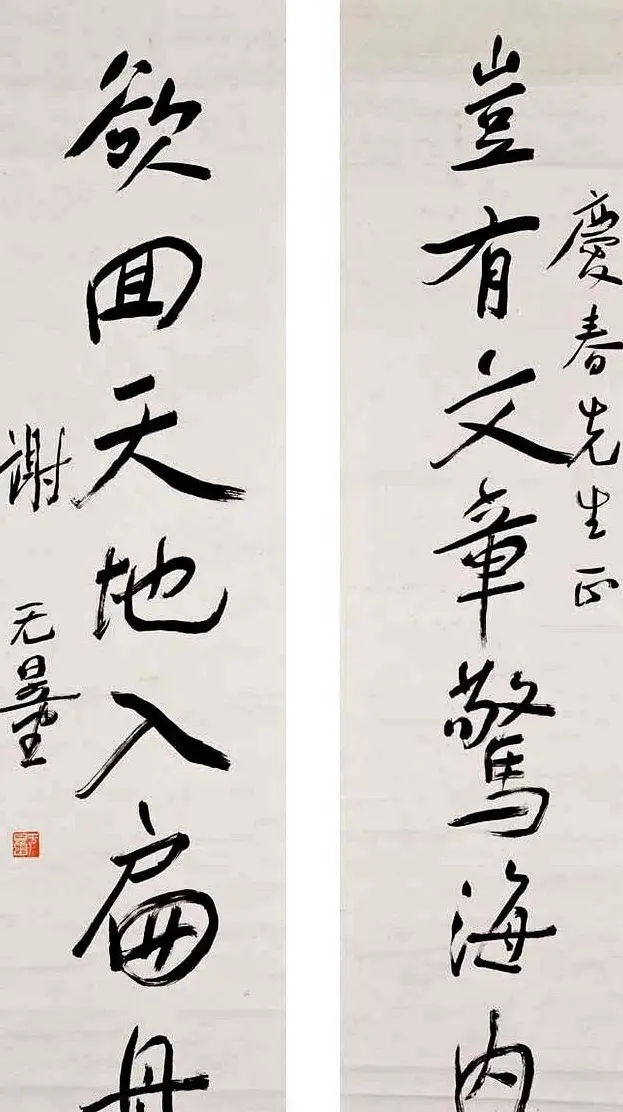 慶春先生正
豈有文章驚海内
欲囬天地入扁舟
謝无量